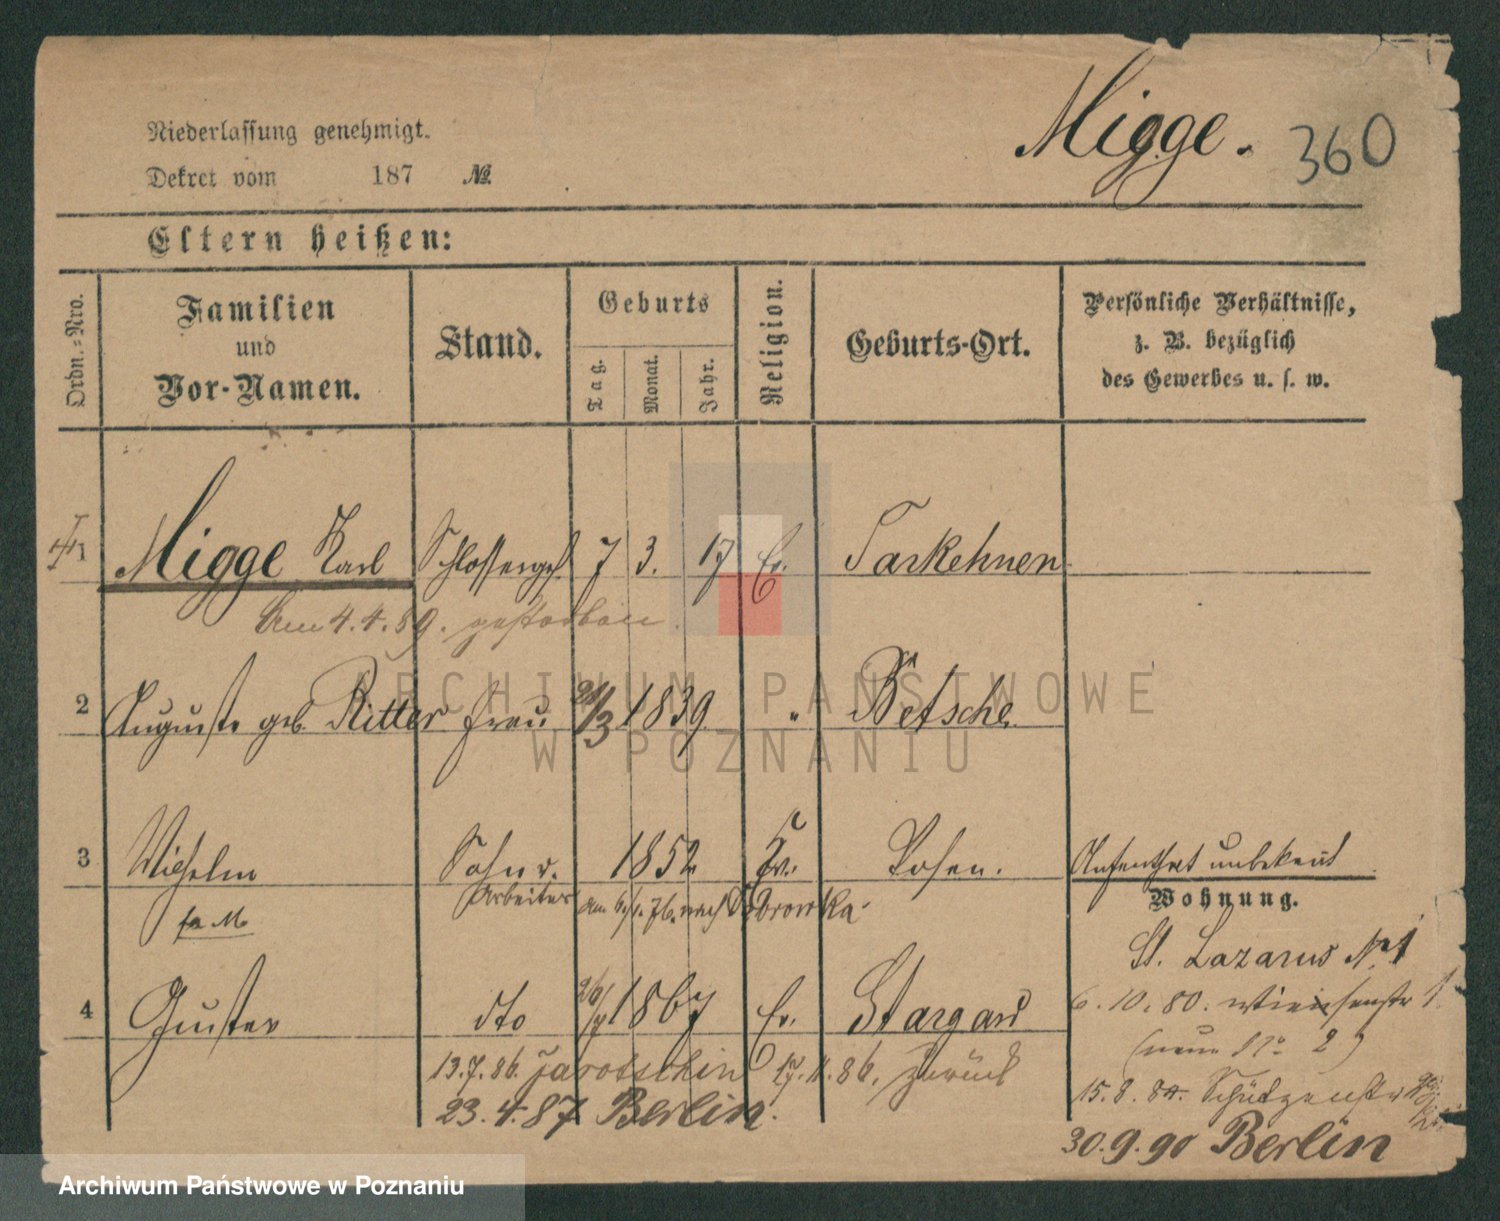 Migge. 360
Niederlassung genehmigt.
Dekret vom 187 №.
Eltern heißen:
Ordn.-Nro.
Familien
und
Vor-Namen.
Stand.
Geburts
Tag.
Monat.
Jahr.
Religion.
Geburts-Ort.
Persönliche Verhältnisse,
z. B. bezüglich
des Gewerbes u. s. w.
1 Migge Karl Schlosserges. 7 3. 17 Ev. Tarkehnen
Am 4.4.89. gestorben.
2 Auguste geb Ritter Frau /3 1839. " Betsche
3 Wilhelm Sohn u. 1852 Ev. Posen. Aufenthalt unbekannt
Arbeiter am 76. nach Dobrowka
Wohnung.
St. Lazarus № 1
6.10.80. Wiesenstr 1.
(neue № 2)
4 Gustav dto 1867 Ev. Stargard
13.7.86. Jarotschin 17.11.86. zurück
15.8.84. Schützenstr
23.4.87 Berlin.
30.9.90 Berlin
ARCHIWUM PAŃSTWOWE
W POZNANIU
Archiwum Państwowe w Poznaniu